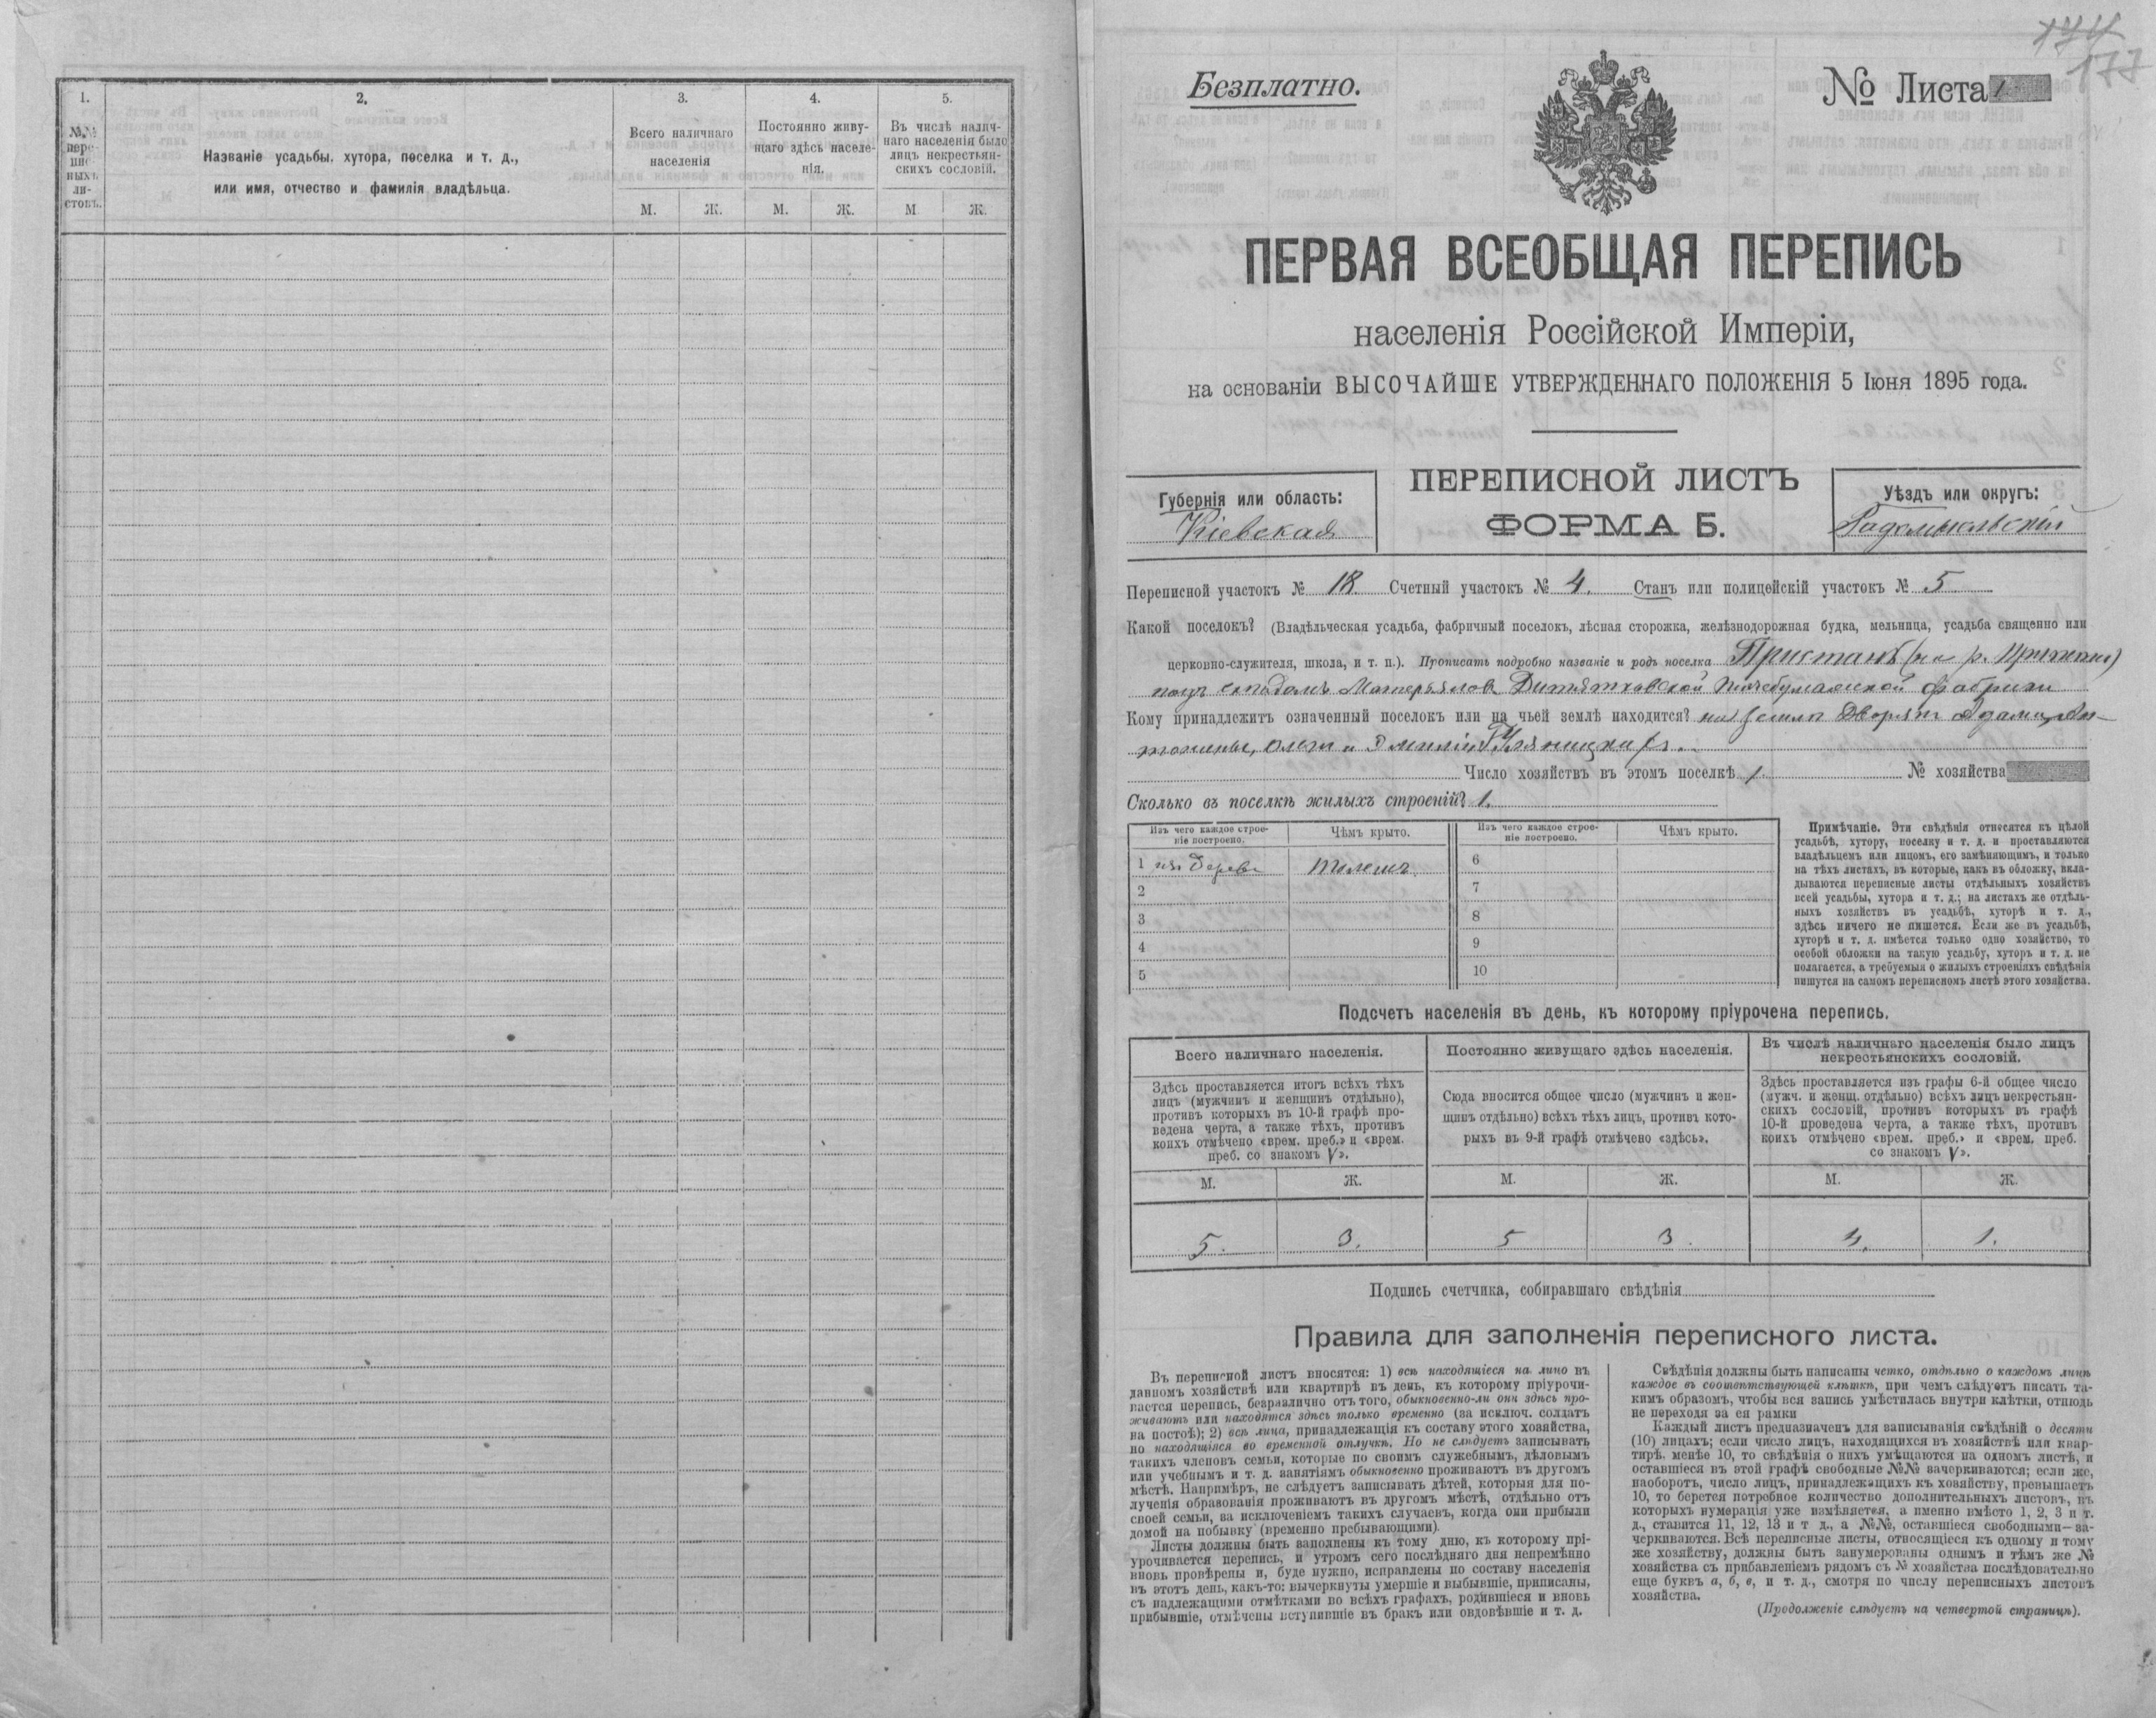 1.
2.
3.
4.
5.
№№ пере- пис- ныхъ ли- стовъ.
Названіе усадьбы, хутора, поселка и т. д.,
или имя, отчество и фамилія владѣльца.
Всего наличнаго
населенія
Постоянно живу-
щаго здѣсь населе-
нія.
Въ числѣ налич-
наго населенія было
лицъ некрестьян-
скихъ сословій.
М. Ж. М. Ж. М Ж.
174
177
Безплатно.
№ Листа 1
ПЕРВАЯ ВСЕОБЩАЯ ПЕРЕПИСЬ
населенія Россійской Имперіи,
на основаніи ВЫСОЧАЙШЕ УТВЕРЖДЕННАГО ПОЛОЖЕНІЯ 5 Іюня 1895 года.
Губернія или область:
Кіевская
ПЕРЕПИСНОЙ ЛИСТЪ
ФОРМА Б.
Уѣздъ или округъ:
Радомысльскій
Переписной участокъ № 18 Счетный участокъ № 4. Станъ или полицейскій участокъ № 5
Какой поселокъ? (Владѣльческая усадьба, фабричный поселокъ, лѣсная сторожка, желѣзнодорожная будка, мельница, усадьба священно или
церковно-служителя, школа, и т. п.). Прописать подробно названіе и родъ поселка Пристань (на р. Припяти)
подъ складомъ Матерьялов Дитятковской писчебумажной фабрики
Кому принадлежитъ означенный поселокъ или на чьей землѣ находится? на земле Дворян Адама, Ан-
тонины, Олги и Эмиліи
Число хозяйствъ въ этомъ поселкѣ 1. № хозяйства
Сколько въ поселкѣ жилыхъ строеній? 1.
Изъ чего каждое строе-
ніе построено.
Чѣмъ крыто.
Изъ чего каждое строе-
ніе построено.
Чѣмъ крыто.
1 из Дерева
6
2 7
3 8
4 9
5 10
Примѣчаніе. Эти свѣдѣнія относятся къ цѣлой
усадьбѣ, хутору, поселку и т. д. и проставляются
владѣльцемъ или лицомъ, его замѣняющимъ, и только
на тѣхъ листахъ, въ которые, какъ въ обложку, вкла-
дываются переписные листы отдѣльныхъ хозяйствъ
всей усадьбы, хутора и т. д.; на листахъ же отдѣль-
ныхъ хозяйствъ въ усадьбѣ, хуторѣ и т. д.,
здѣсь ничего не пишется. Если же въ усадьбѣ,
хуторѣ и т. д. имѣется только одно хозяйство, то
особой обложки на такую усадьбу, хуторъ и т. д. не
полагается, а требуемыя о жилыхъ строеніяхъ свѣдѣнія
пишутся на самомъ переписномъ листѣ этого хозяйства.
Подсчетъ населенія въ день, къ которому пріурочена перепись.
Всего наличнаго населенія.
Здѣсь проставляется итогъ всѣхъ тѣхъ
лицъ (мужчинъ и женщинъ отдѣльно),
противъ которыхъ въ 10-й графѣ про-
ведена черта, а также тѣхъ, противъ
коихъ отмѣчено «врем. преб.» и «врем.
преб. со знакомъ V».
Постоянно живущаго здѣсь населенія.
Сюда вносится общее число (мужчинъ и жен-
щинъ отдѣльно) всѣхъ тѣхъ лицъ, противъ кото-
рыхъ въ 9-й графѣ отмѣчено «здѣсь».
Въ числѣ наличнаго населенія было лицъ
некрестьянскихъ сословій.
Здѣсь проставляется изъ графы 6-й общее число
(мужч. и женщ. отдѣльно) всѣхъ лицъ некрестьян-
скихъ сословій, противъ которыхъ въ графѣ
10-й проведена черта, а также тѣхъ, противъ
коихъ отмѣчено «врем. преб.» и «врем. преб.
со знакомъ V».
М. Ж. М. Ж. М. Ж.
5. 3. 5 3. 4. 1.
Подпись счетчика, собиравшаго свѣдѣнія
Правила для заполненія переписного листа.
Въ переписной листъ вносятся: 1) всѣ находящіеся на лицо въ
данномъ хозяйствѣ или квартирѣ въ день, къ которому пріурочи-
вается перепись, безразлично отъ того, обыкновенно-ли они здѣсь про-
живаютъ или находятся здѣсь только временно (за исключ. солдатъ
на постоѣ); 2) всѣ лица, принадлежащія къ составу этого хозяйства,
но находящіяся во временной отлучкѣ. Но не слѣдуетъ записывать
такихъ членовъ семьи, которые по своимъ служебнымъ, дѣловымъ
или учебнымъ и т. д. занятіямъ обыкновенно проживаютъ въ другомъ
мѣстѣ. Напримѣръ, не слѣдуетъ записывать дѣтей, которыя для по-
лученія образованія проживаютъ въ другомъ мѣстѣ, отдѣльно отъ
своей семьи, за исключеніемъ такихъ случаевъ, когда они прибыли
домой на побывку (временно пребывающими).
Листы должны быть заполнены къ тому дню, къ которому прі-
урочивается перепись, и утромъ сего послѣдняго дня непремѣнно
вновь провѣрены и, буде нужно, исправлены по составу населенія
въ этотъ день, какъ-то: вычеркнуты умершіе и выбывшіе, приписаны,
съ надлежащими отмѣтками во всѣхъ графахъ, родившіеся и вновь
прибывшіе, отмѣчены вступившіе въ бракъ или овдовѣвшіе и т. д.
Свѣдѣнія должны быть написаны четко, отдѣльно о каждомъ лицѣ
каждое въ соотвѣтствующей клѣткѣ, при чемъ слѣдуетъ писать та-
кимъ образомъ, чтобы вся запись умѣстилась внутри клѣтки, отнюдь
не переходя за ея рамки
Каждый листъ предназначенъ для записыванія свѣдѣній о десяти
(10) лицахъ; если число лицъ, находящихся въ хозяйствѣ или квар-
тирѣ, менѣе 10, то свѣдѣнія о нихъ умѣщаются на одномъ листѣ, и
оставшіеся въ этой графѣ свободные №№ зачеркиваются; если же,
наоборотъ, число лицъ, принадлежащихъ къ хозяйству, превышаетъ
10, то берется потребное количество дополнительныхъ листовъ, въ
которыхъ нумерація уже измѣняется, а именно вмѣсто 1, 2, 3 и т.
д., ставится 11, 12, 13 и т д., а №№, оставшіеся свободными—за-
черкиваются. Всѣ переписные листы, относящіеся къ одному и тому
же хозяйству, должны быть занумерованы однимъ и тѣмъ же №
хозяйства съ прибавленіемъ рядомъ съ № хозяйства послѣдовательно
еще буквъ а, б, в, и т. д., смотря по числу переписныхъ листовъ
хозяйства.
(Продолженіе слѣдуетъ на четвертой страницѣ).